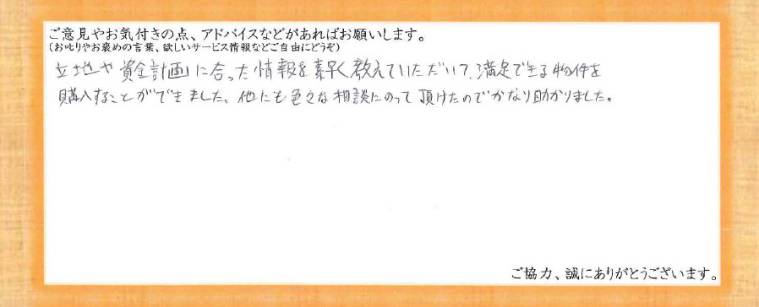 ご意見やお気付きの点、アドバイスなどがあればお願いします。
（お叱りやお褒めの言葉、欲しいサービス情報などご自由にどうぞ）
立地や資金計画に合った情報を素早く教えていただいて、満足できる物件を
購入することができました、他にも色々な相談にのって頂けたのでかなり助かりました。
ご協力、誠にありがとうございます。